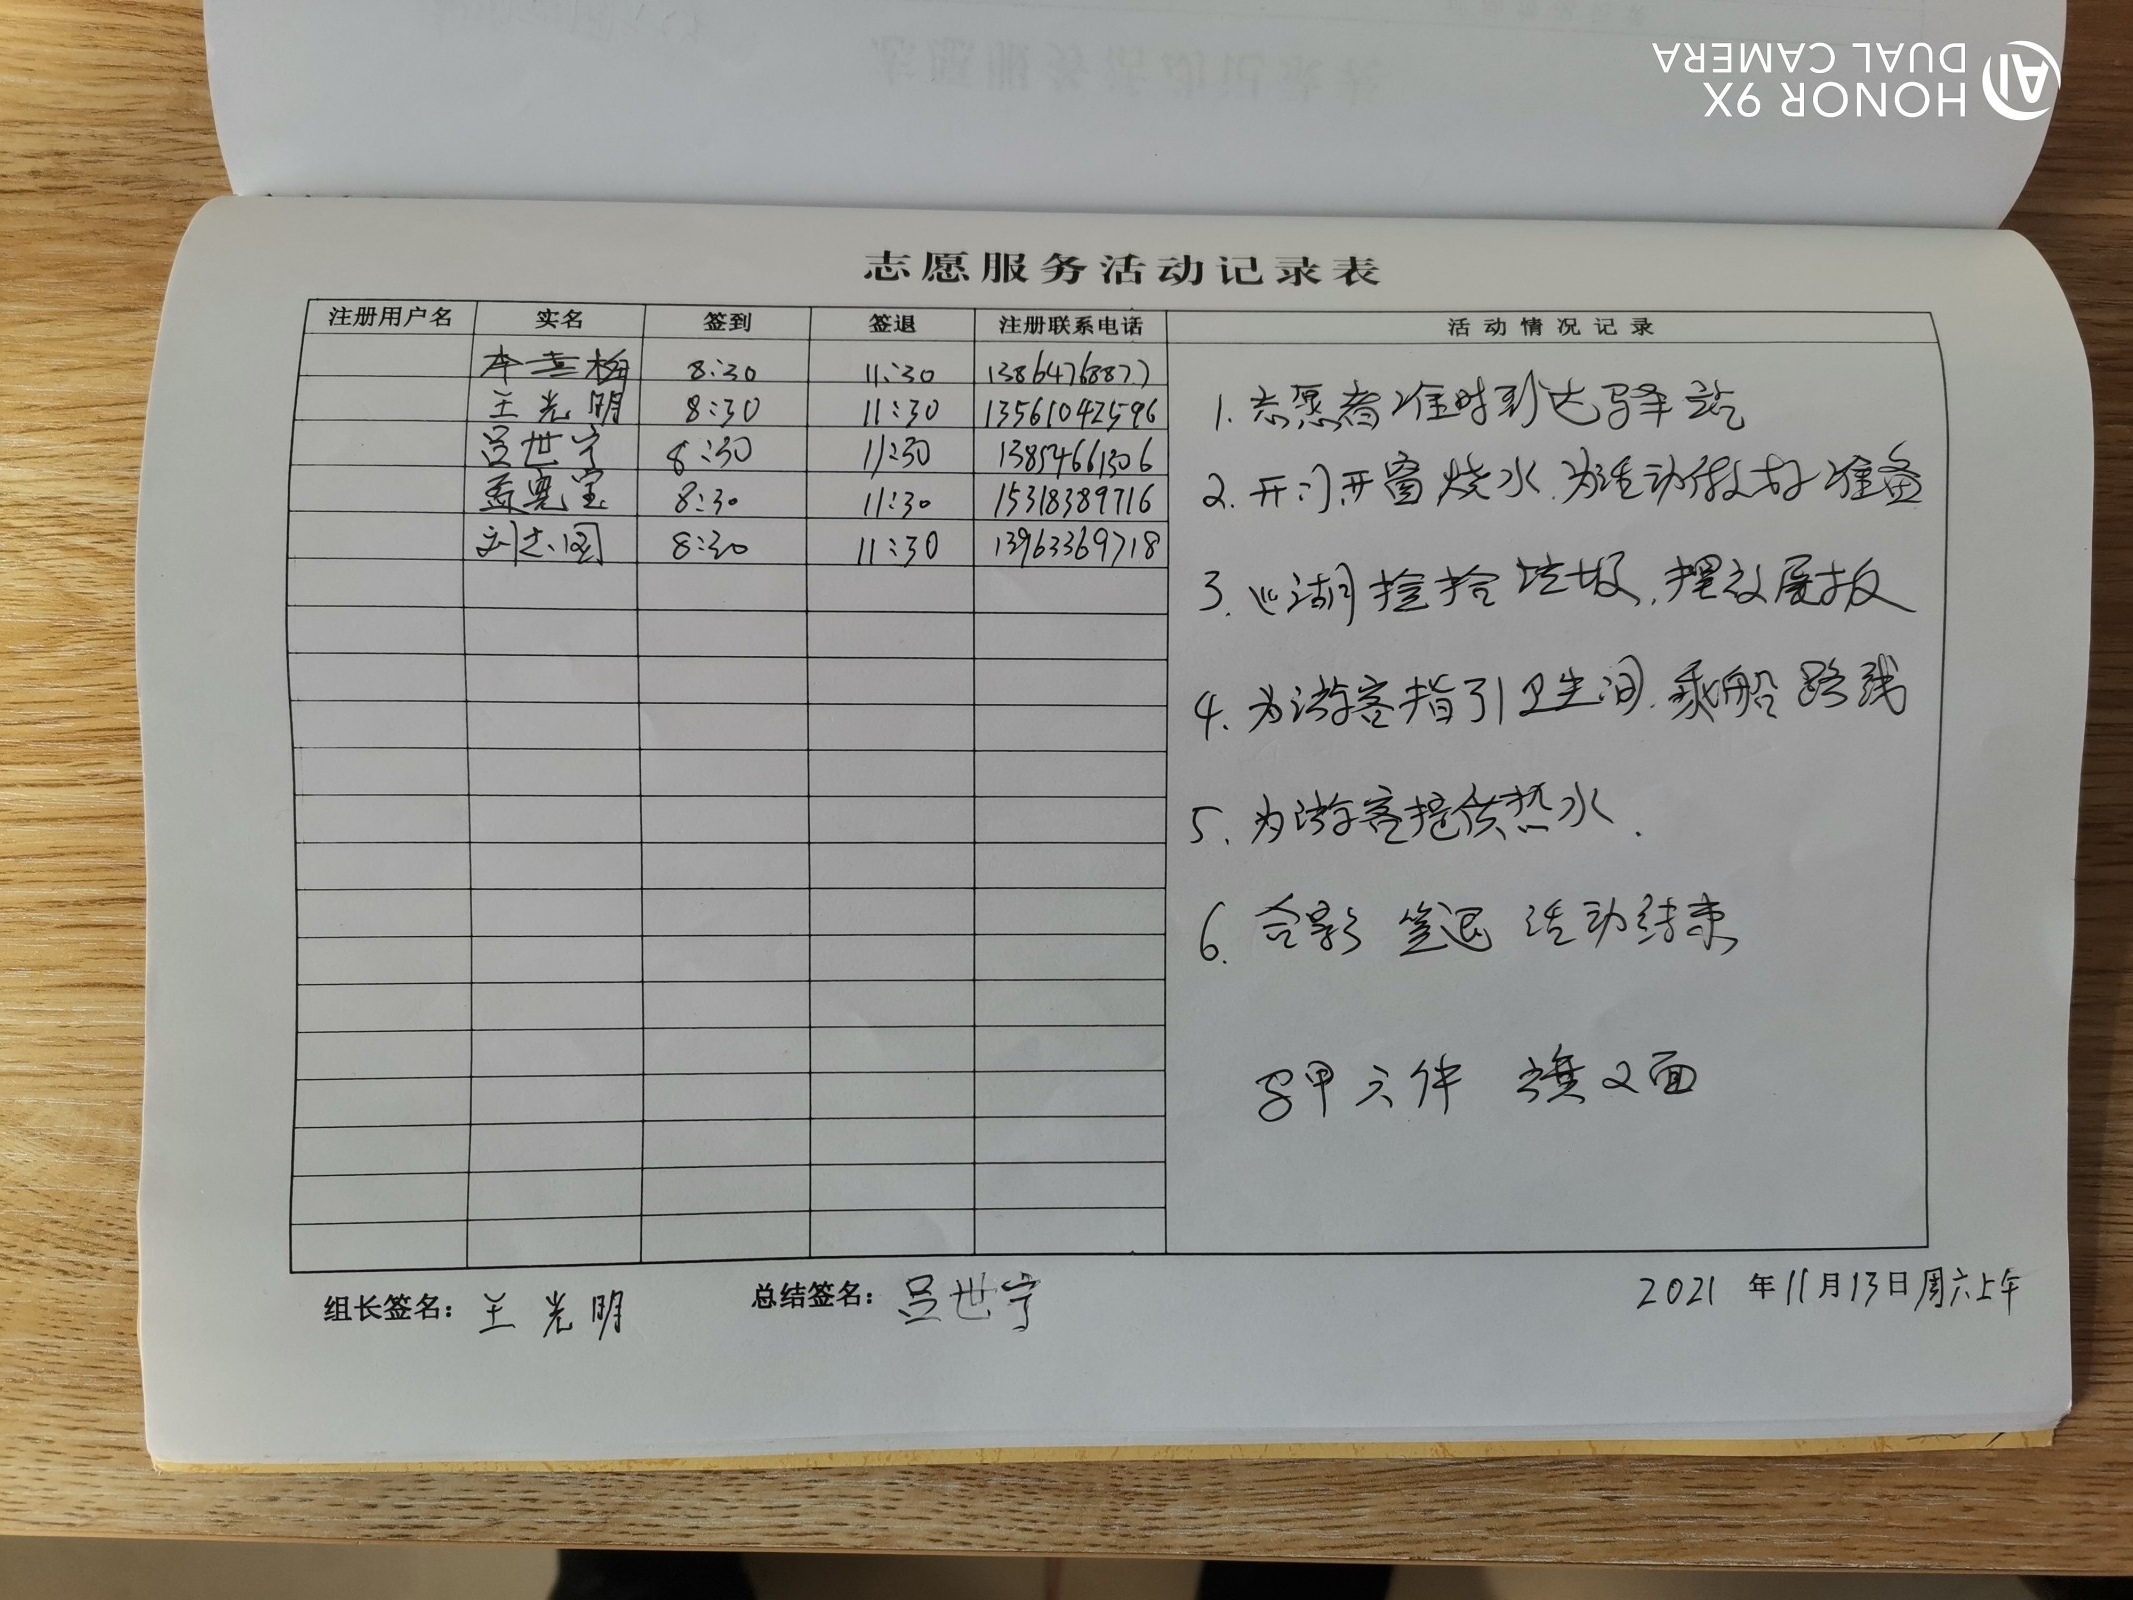 HONOR 9X
DUAL CAMERA
志愿服务活动记录表
注册用户名 实名 签到 签退 注册联系电话 活动情况记录
8:30 11:30 13864768877
王光明 8:30 11:30 13561042596
吕世宁 8:30 11:30 13854661306
孟宪宝 8:30 11:30 15318389716
刘志国 8:30 11:30 13963369718
1. 志愿者准时到达驿站
2. 开门开窗烧水.为活动做好准备
3. 巡湖捡拾垃圾.摆放展板
4. 为游客指引卫生间.乘船路线
5. 为游客提供热水.
6. 合影 签退 活动结束
马甲六件 旗2面
组长签名: 王光明 总结签名: 吕世宁 2021年11月13日周六上午